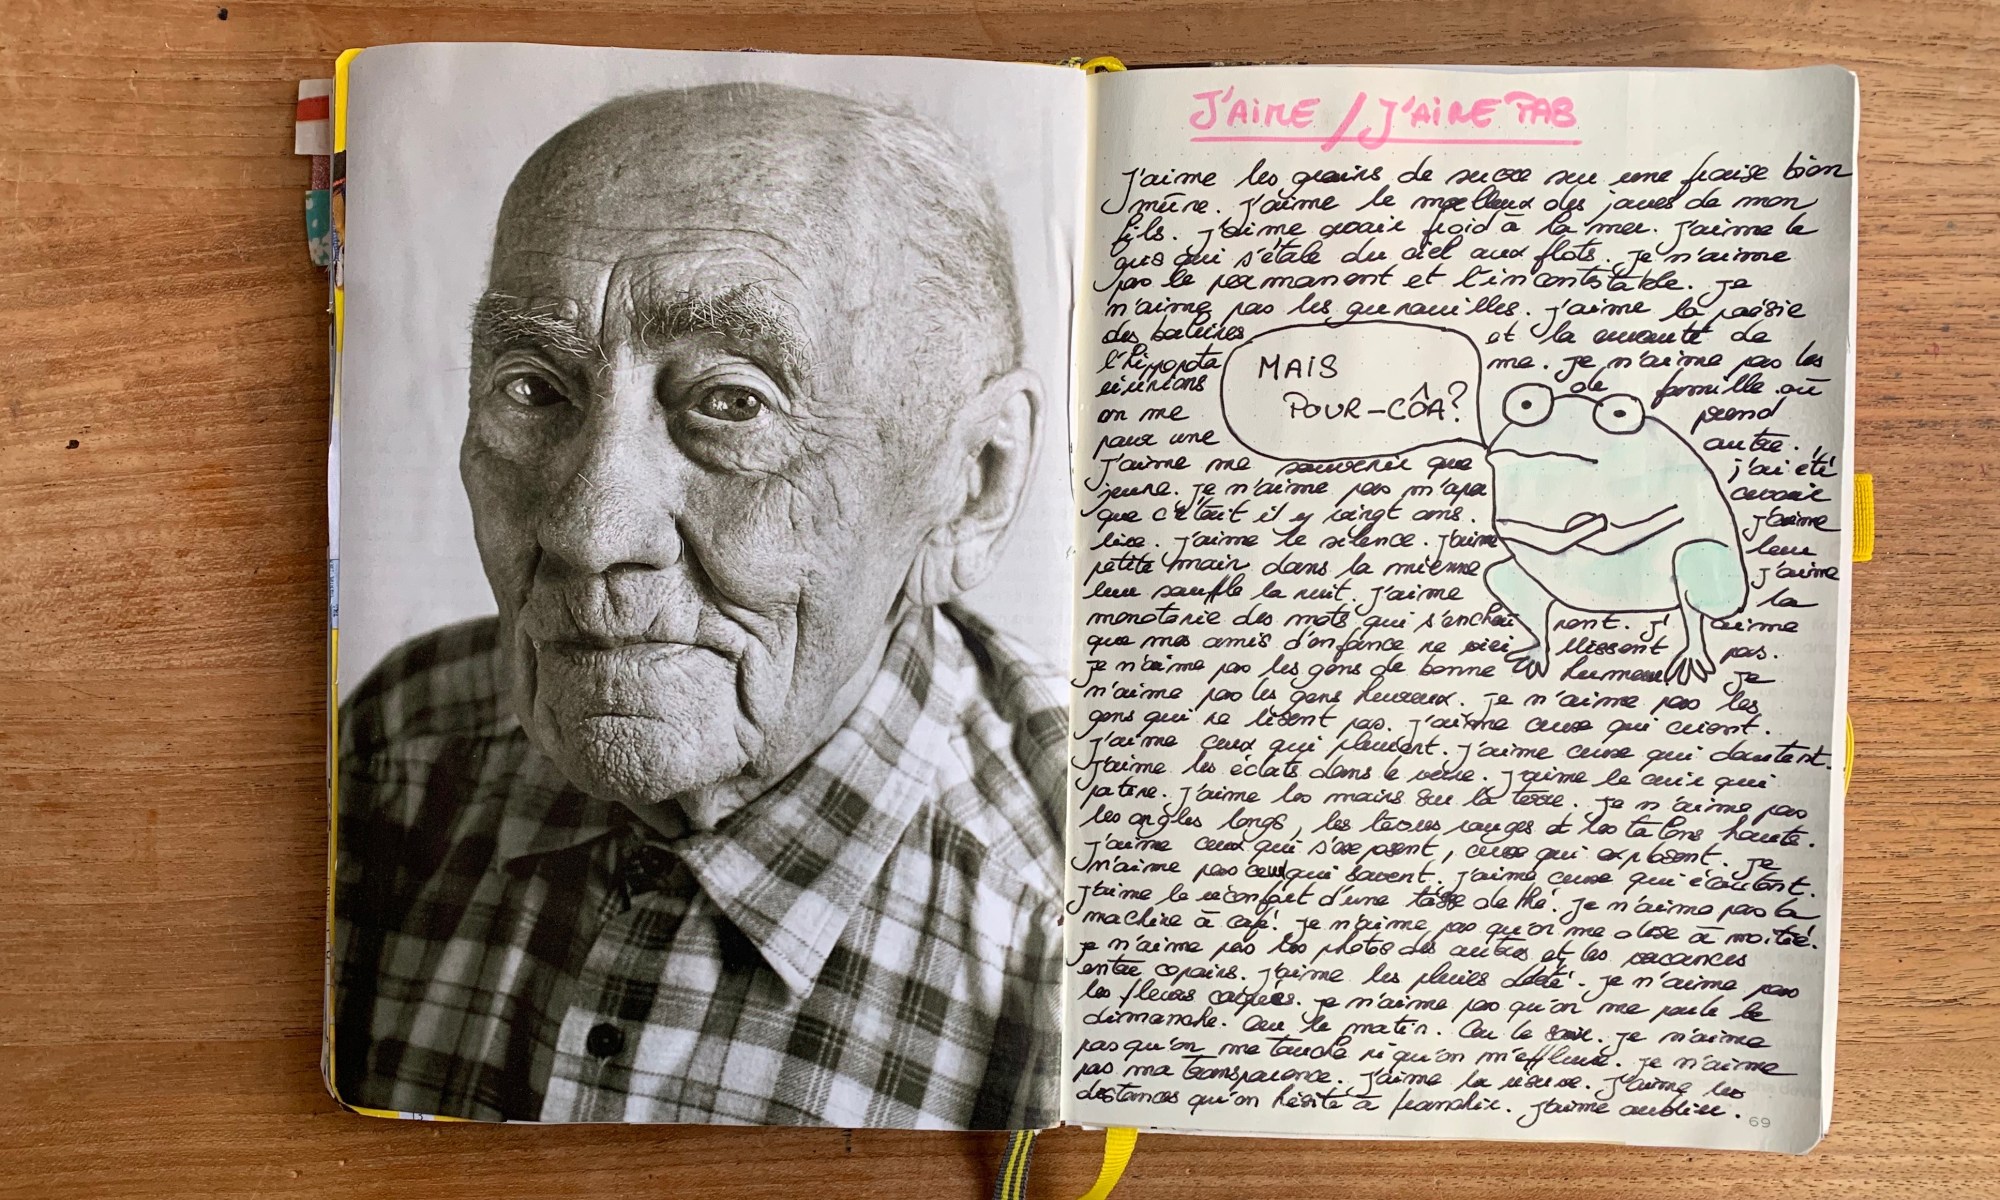 J'AIME / J'AIME PAS
J'aime les grains de sucre sur une fraise bien
mûre. J'aime le moelleux des joues de mon
fils. J'aime avoir froid à la mer. J'aime le
gris qui s'étale du ciel aux flots. Je n'aime
pas le permanent et l'incontestable. Je
n'aime pas les grenouilles. J'aime la poésie
des baleines et la cruauté de
l'hippopota me. Je n'aime pas les
réunions de famille où
on me prend
pour une autre.
MAIS
POUR-CÔA?
J'aime me souvenir que j'ai été
jeune. Je n'aime pas m'aper cevoir
que c'était il y vingt ans. J'aime
lire. J'aime le silence. J'aime leur
petite main dans la mienne J'aime
leur souffle la nuit. J'aime la
monotonie des mots qui s'enchaî nent. J'aime
que mes amis d'enfance ne viei llissent pas.
Je n'aime pas les gens de bonne humeur. Je
n'aime pas les gens heureux. Je n'aime pas les
gens qui ne lisent pas. J'aime ceux qui crient.
J'aime ceux qui pleurent. J'aime ceux qui doutent.
J'aime les éclats dans le verre. J'aime le cuir qui
patine. J'aime les mains sur la terre. Je n'aime pas
les ongles longs, les lèvres rouges et les talons hauts.
J'aime ceux qui s'exposent, ceux qui explosent. Je
n'aime pas ceux qui savent. J'aime ceux qui écoutent.
J'aime le réconfort d'une tasse de thé. Je n'aime pas la
machine à café. Je n'aime pas qu'on me aime à moitié.
Je n'aime pas les photos des autres et les vacances
entre copains. J'aime les pluies d'été. Je n'aime pas
les fleurs coupées. Je n'aime pas qu'on me parle le
dimanche. Ou le matin. Ou le soir. Je n'aime
pas qu'on me touche ni qu'on m'effleure. Je n'aime
pas ma transparence. J'aime la réserve. J'aime les
distances qu'on hésite à franchir. J'aime oublier.
69